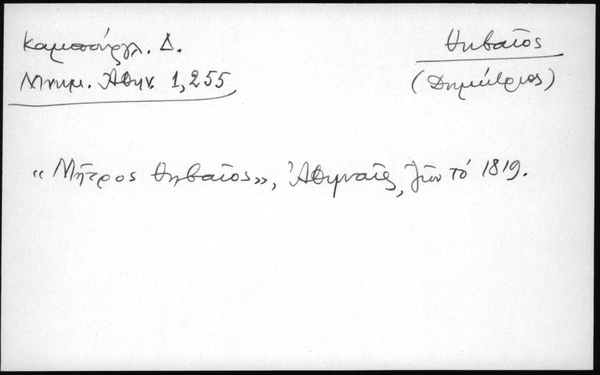 Καμπούργλ. Δ.
Μνημ. Ἀθην. 1,255
Θηβαῖος
(Δημήτριος)
«Μῆτρος Θηβαῖος», Ἀθηναῖς, ζῶν τό 1819.